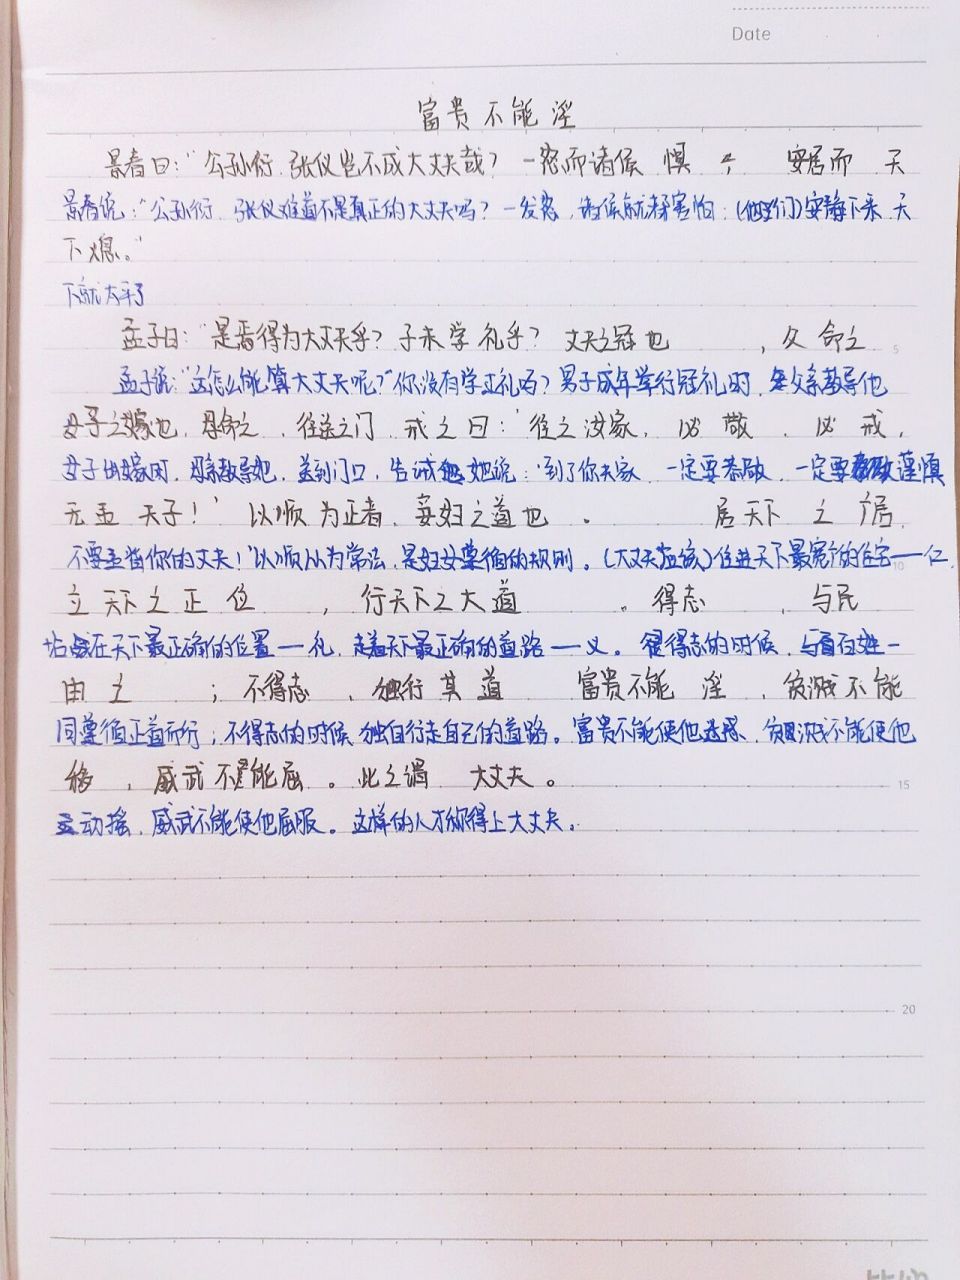 Date
富贵不能淫
景春曰:"公孙衍、张仪岂不成大丈夫哉?一怒而诸侯惧,安居而天
景春说:"公孙衍、张仪难道不是真正的大丈夫吗?一发怒,诸侯就都害怕;(他们)安静下来,天
下熄。"
下就太平了
孟子曰:"是焉得为大丈夫乎?子未学礼乎?丈夫之冠也,父命之
5
孟子说:"这怎么能算大丈夫呢?"你没有学过礼吗?男子成年举行冠礼时,父亲教导他
女子之嫁也,母命之,往送之门,戒之曰:'往之汝家,必敬,必戒,
女子出嫁时,母亲教导她,送到门口,告诫她说:'到了你夫家,一定要恭敬,一定要谨慎
无孟天子!'以顺为正者,妾妇之道也。居天下之广居,
不要违背你的丈夫!'以顺从为常法,是妇女遵循的规则。(大丈夫应该)住进天下最宽广的住宅——仁,
10
立天下之正位,行天下之大道。得志,与民
站在天下最正确的位置——礼,走着天下最正确的道路——义。得志的时候,与百姓一
由之;不得志,独行其道 富贵不能淫,贫贱不能
同遵循正道而行;不得志的时候独自行走自己的道路。富贵不能使他迷惑,贫贱不能使他
移,威武不能屈。此之谓大丈夫。
15
动摇,威武不能使他屈服。这样的人才称得上大丈夫。
20